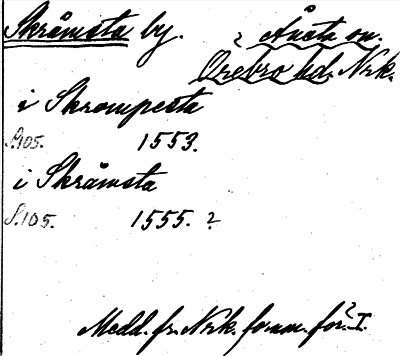 Skråmsta by. ? Ånsta sn.
Örebro hd. Nrk.
i Skrompesta
S.105. 1553.
i Skråmsta
S.105. 1555. ?
Medd. fr. Nrk. fornm. för. I.